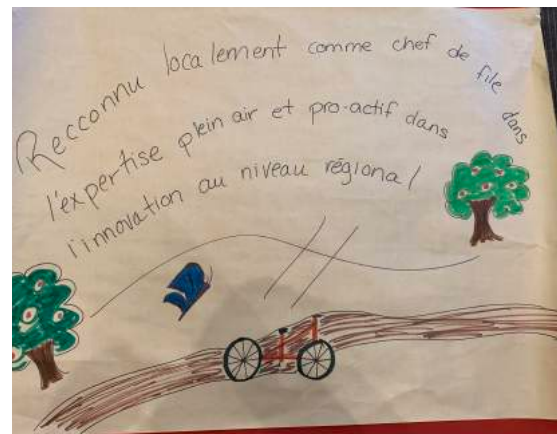 Recconnu localement comme chef de file dans
l'expertise plein air et pro-actif dans
l'innovation au niveau régional